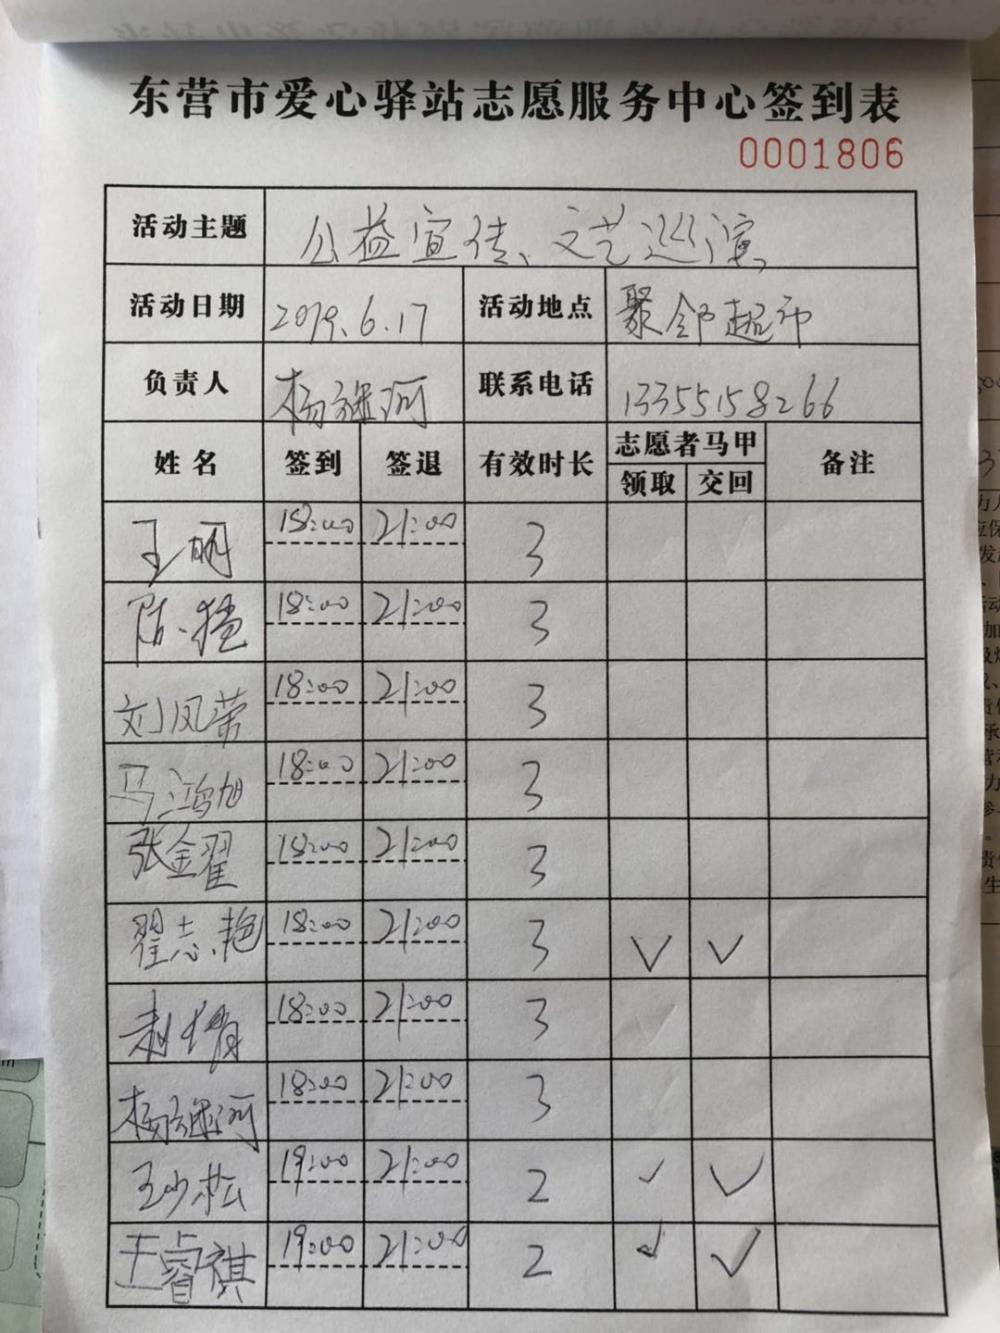 东营市爱心驿站志愿服务中心签到表
0001806
活动主题 公益宣传、文艺巡演
活动日期 2019.6.17 活动地点 聚邻超市
负责人 杨继河 联系电话 13355158266
姓名 签到 签退 有效时长 志愿者马甲 备注
领取 交回
王明 18:00 21:00 3
陈猛 18:00 21:00 3
刘凤荣 18:00 21:00 3
马鸿旭 18:00 21:00 3
张金翟 18:00 21:00 3
翟志艳 18:00 21:00 3 √ √
赵倩 18:00 21:00 3
杨继河 18:00 21:00 3
王少松 19:00 21:00 2 √ √
王睿祺 19:00 21:00 2 √ √